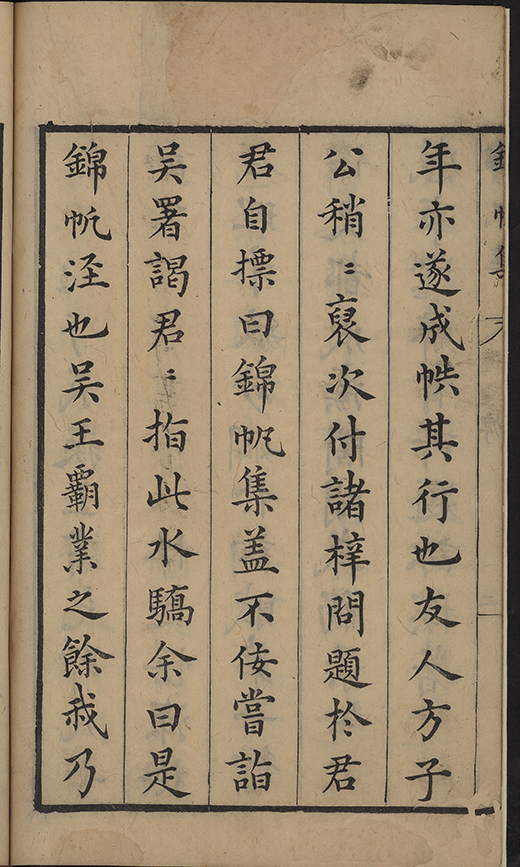 錦帆集
年亦遂成帙其行也友人方子
公稍〻裒次付諸梓問題於君
君自摽曰錦帆集盖不佞嘗詣
吴署謁君〻指此水驕余曰是
錦帆泾也吴王覇業之餘哉乃